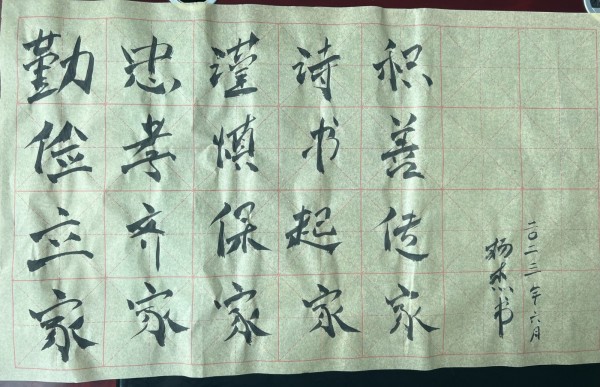 勤俭立家
忠孝齐家
谨慎保家
诗书起家
积善传家
杨杰书
二〇二三年六月